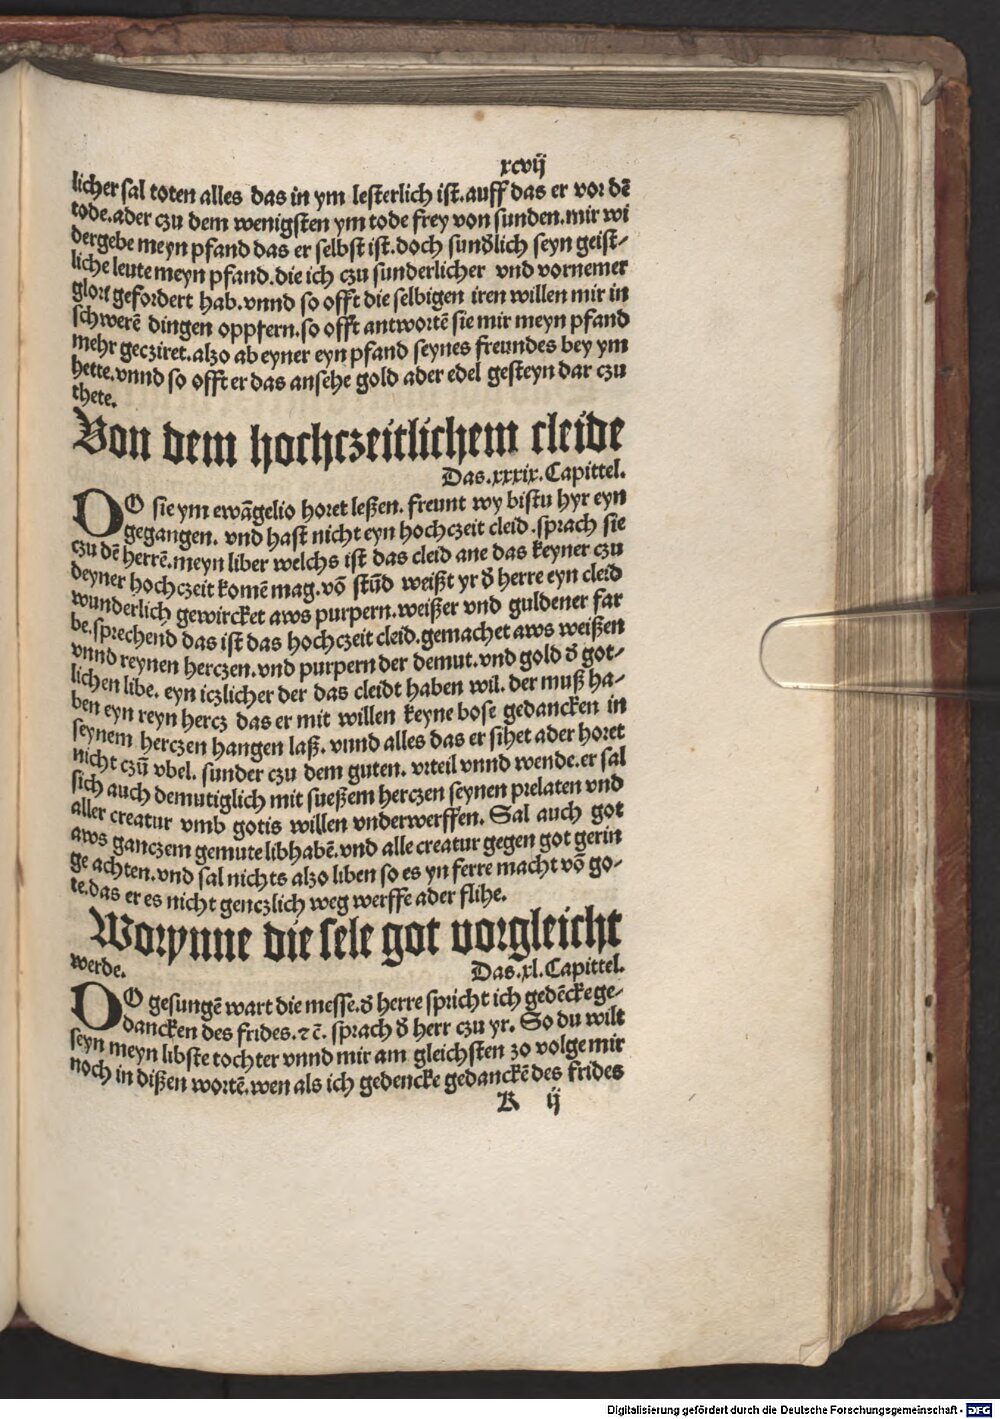 xcvij
licher sal toten alles das in ym lesterlich ist. auff das er vor dē
tode. ader czu dem wenigsten ym tode frey von sunden. mir wi
dergebe meyn pfand das er selbst ist. doch sunđlich seyn geist⸗
liche leute meyn pfand. die ich czu sunderlicher vnd vornemer
glori gefordert hab. vnnd so offt die selbigen iren willen mir in
schwerē dingen oppfern. so offt antwortē sie mir meyn pfand
mehr gecziret. alzo ab eyner eyn pfand seynes freundes bey ym
hette. vnnd so offt er das ansehe gold ader edel gesteyn dar czu
thete.
Von dem hochczeitlichem cleide
Das. xxxix. Capittel.
DO sie ym ewāgelio horet leßen. freunt wy bistu hyr eyn
gegangen. vnd hast nicht eyn hochczeit cleid. sprach sie
czu dē herrē. meyn liber welchs ist das cleid ane das keyner czu
deyner hochczeit komē mag. vō stūd weißt yr đ herre eyn cleid
wunderlich gewircket aws purpern. weißer vnd guldener far
be. sprechend das ist das hochczeit cleid. gemachet aws weißen
vnnd reynen herczen. vnd purpern der demut. vnd gold đ got⸗
lichen libe. eyn iczlicher der das cleidt haben wil. der muß ha⸗
ben eyn reyn hercz das er mit willen keyne bose gedancken in
seynem herczen hangen laß. vnnd alles das er sihet ader horet
nicht czū vbel. sunder czu dem guten. vrteil vnnd wende. er sal
sich auch demutiglich mit sueßem herczen seynen prelaten vnd
aller creatur vmb gotis willen vnderwerffen. Sal auch got
aws ganczem gemute libhabē. vnd alle creatur gegen got gerin
ge achten. vnd sal nichts alzo liben so es yn ferre macht vō go⸗
te. das er es nicht genczlich weg werffe ader flihe.
Worynne die sele got vorgleicht
werde. Das. xl. Capittel.
DO gesungē wart die messe. đ herre spricht ich gedēcke ge⸗
dancken des frides. ⁊ c̄. sprach đ herr czu yr. So du wilt
seyn meyn libste tochter vnnd mir am gleichsten zo volge mir
noch in dißen wortē. wen als ich gedencke gedanckē des frides
K ij
Digitalisierung gefördert durch die Deutsche Forschungsgemeinschaft - DFG